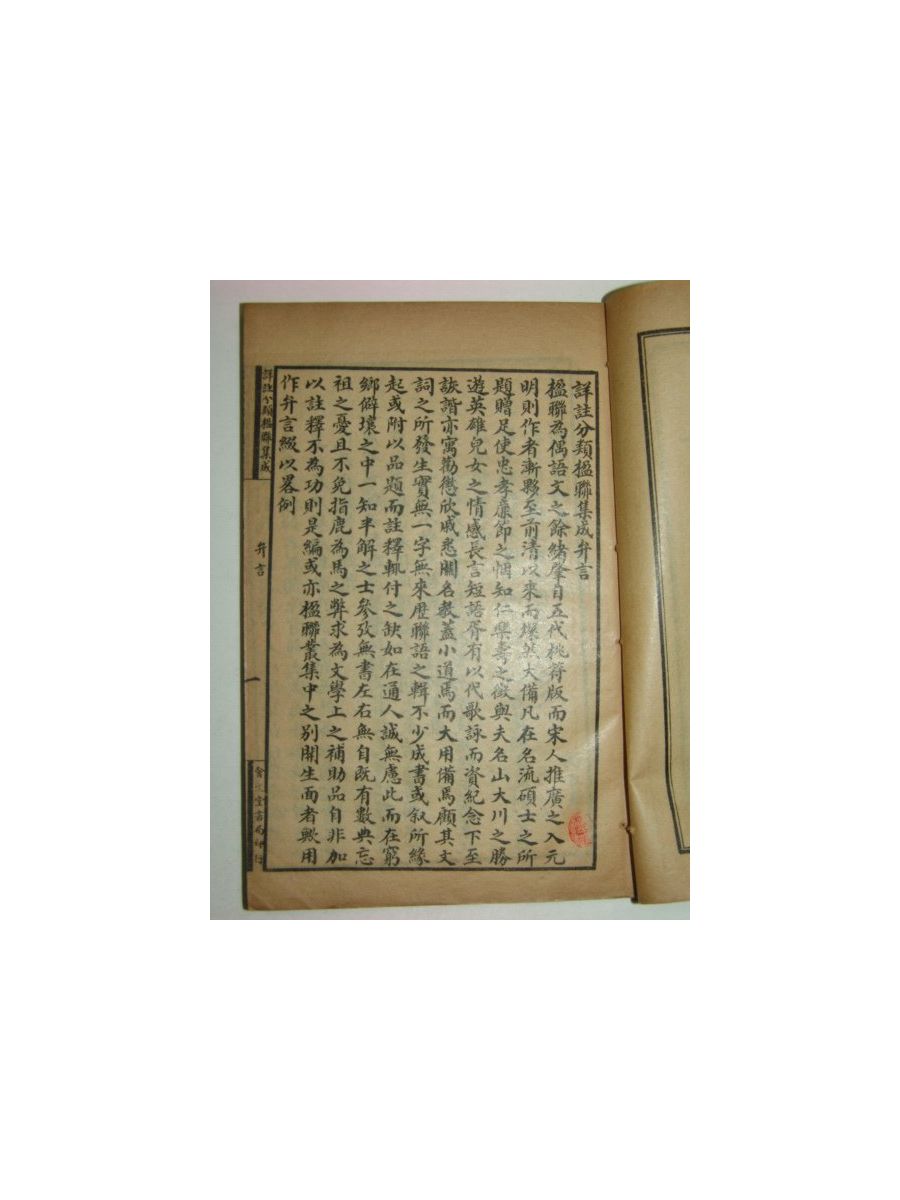 詳註分類楹聯集成弁言
楹聯為偶語文之餘緒肇自五代桃符版而宋人推廣之入元
明則作者漸夥至前清以來而燦然大備凡在名流碩士之所
題贈足使忠孝廉節之悃知仁樂壽之徵與夫名山大川之勝
遊英雄兒女之情感長言短語胥有以代歌詠而資紀念下至
詼諧亦寓勸懲欣戚悉關名教蓋小道焉而大用備焉顧其文
詞之所發生實無一字無來歷聯語之輯不少成書或叙所緣
起或附以品題而註釋輒付之缺如在通人誠無慮此而在窮
鄉僻壤之中一知半解之士參攷無書左右無自既有數典忘
祖之憂且不免指鹿為馬之弊求為文學上之補助品自非加
以註釋不為功則是編或亦楹聯叢集中之別開生面者歟用
作弁言綴以畧例
詳註分類楹聯集成
弁言
一
會文堂書局印行